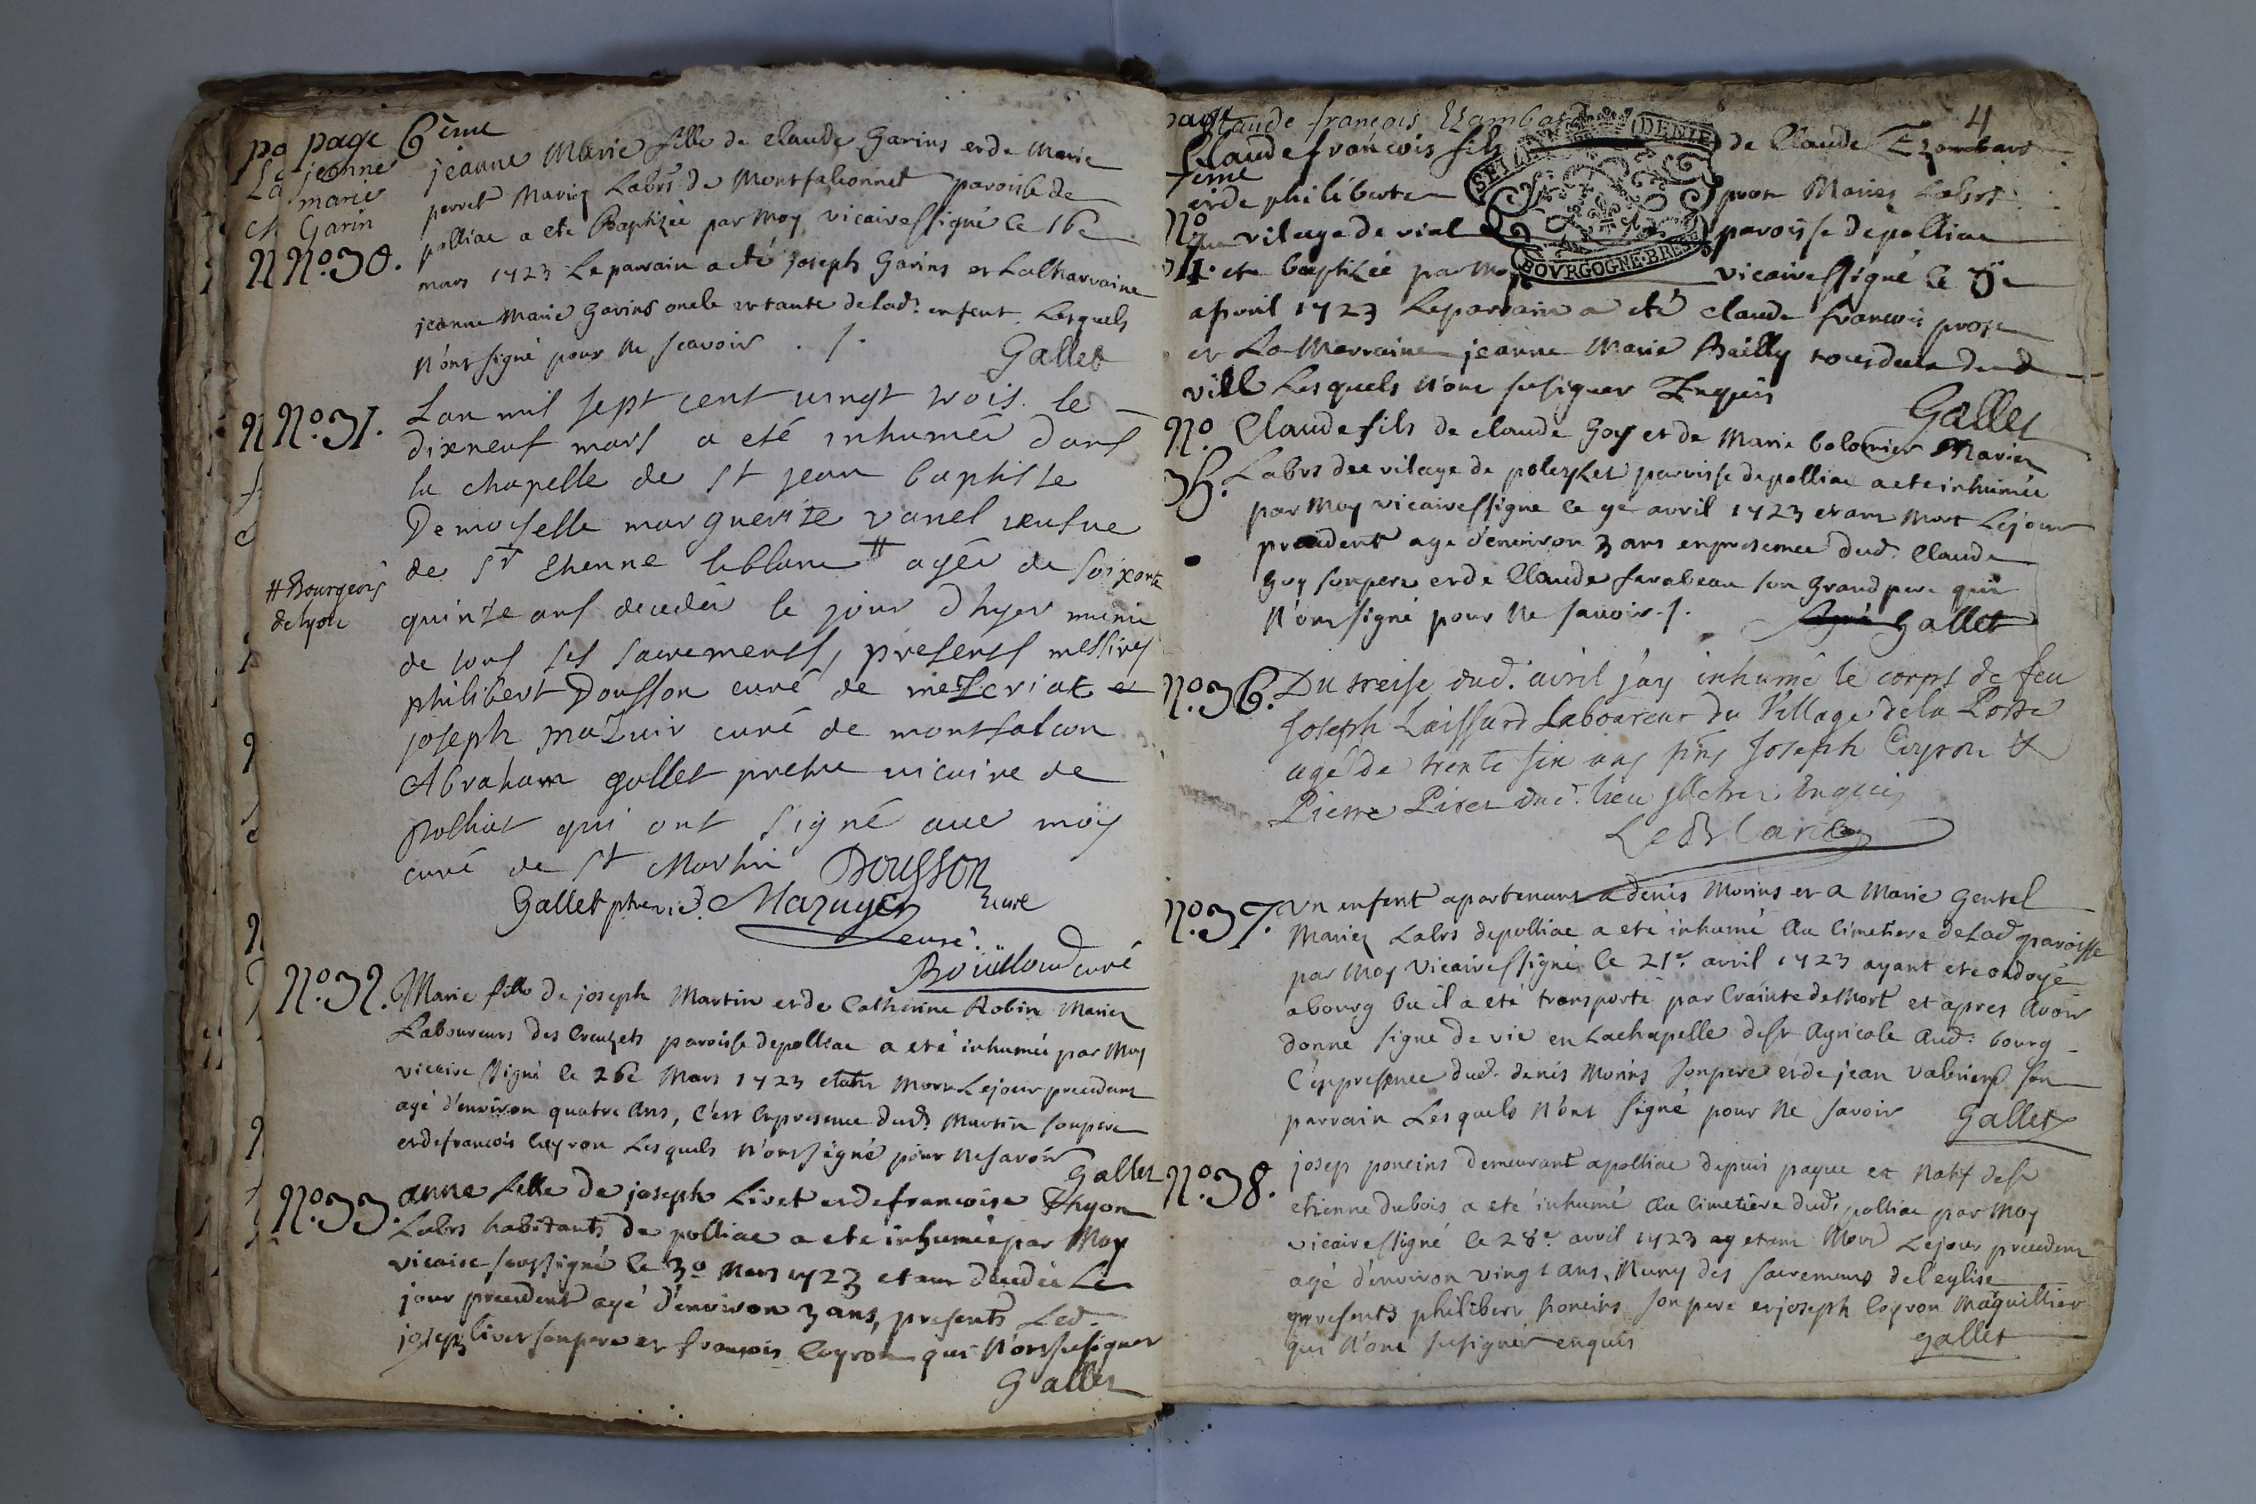 page 6ème
jeanne
marie
Garin
No. 30.
jeanne Marie fille de claude Garins et de Marie
perret Mariez Labrs de Montfalconnet paroisse de
polliac a ete Baptizée par Moy vicaire ssigné le 16e
mars 1723 Le parrain a eté joseph Garins et La Marraine
jeanne Marie Garins oncle et tante de lad. enfent Lesquels
N'ont signé pour Ne scavoir ./.
Gallet
No. 31.
Lan mil sept cent vingt trois le
dixneuf mars a eté inhumée dans
la chapelle de st jean baptiste
Demoiselle marguerite vanel veufue
de sr etienne leblanc # agée de soixante
# Bourgeois
de lyon
quinze ans decedée le jour d'hyer munie
de tous ses sacrements, presents messires
philibert Dousson curé de mezeriat et
joseph mazuir curé de montfalcon
Abraham gallet pretre vicaire de
polliat qui ont signé avec moÿ
curé de st Martin Dousson
Gallet ptre vic. Mazuyer curé
curé.
Boüilloud curé
No. 32.
Marie fille de joseph Martin et de Catherine Robin Mariez
Laboureurs des Creuzets paroisse de polliac a eté inhumée par Moy
vicaire ssigné le 26e Mars 1723 etant Morte Le jour precedent
agé d'environ quatre Ans, C'est En presence dud. Martin son pere
et de francois Coyron Lesquels N'ont signé pour Ne savoir
Gallet
No. 33.
anne fille de joseph Livet et de francoise Thyon
Labrs habitants de polliac a ete inhumée par Moy
vicaire soussigné le 30 Mars 1723 etant decedée Le
jour precedent agé d'environ 3 ans, presents Led.
joseph livet son pere et francois Coyron qui N'ont su signer
Gallet
4
Claude francois
Claude francois fils de Claude
7eme
et de philiberte prost Mariez Labrs
No
vilage de vial paroisse de polliac
ete baptizée par Moy vicaire ssigné le
apvril 1723 Le parrain a eté claude francois prost
et La Marraine jeanne Marie Bailly tous deux dud
vill Lesquels N'ont su signer Enquis
Gallet
SEI DENIE
BOVRGOGNE·BRESSE
No
35.
Claude fils de claude Goy et de Marie bolomier Mariez
Labrs du vilage de polezet paroisse de polliac a ete inhumée
par Moy vicaire ssigne le 9e avril 1723 etant Mort Le jour
precedent age d'environ 3 ans en presence dud. Claude
Goy son pere et de Claude son Grand pere qui
N'ont signé pour Ne savoir ./.
signé Gallet
No. 36.
Du treise dud. avril j'ay inhumé le corps de feu
Joseph Laissard Laboureur du Village de la Poste
agé de trente six ans pnts Joseph Coyron &
Pierre Livet dud. lieu Enquis
LeBlanc
No. 37.
Un enfent apartenant a denis Morins et a Marie Gentel
Mariez Labrs de polliac a eté inhumé Au Cimetiere de Lad. paroisse
par Moy Vicaire ssigné le 21e avril 1723 ayant ete ondoyé
a bourg Ou il a eté transporté par Crainte de Mort et apres Avoir
donne signe de vie en La chapelle de st Agricole Aud. bourg
C'en presence dud. denis Morins son pere et de jean son
parrain Lesquels N'ont signé pour Ne savoir
Gallet
No. 38.
josep poncins demeurant a polliac depuis paque et Natif de st
etienne dubois a eté inhumé Au Cimetiere dud. polliac par Moy
vicaire ssigné le 28e avril 1723 etant Mort Le jour precedent
agé d'environ vingt ans, Muny des sacrements de l'eglise
presents philibert poncins son pere et joseph Coyron Maguillier
qui N'ont su signer enquis
Gallet